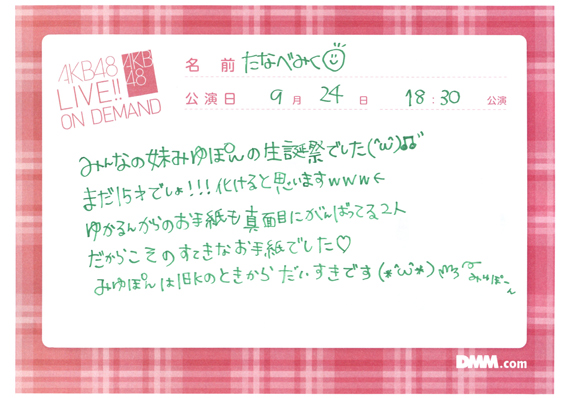 AKB48
LIVE!!
ON DEMAND
AKB
48
名 前 たなべみく
公演日 9 月 24 日 18:30 公演
みんなの妹みゆぽんの生誕祭でした(^ω^)♫
まだ15才でしょ!!!化けると思いますwww←
ゆかるんからのお手紙も真面目にがんばってる2人
だからこそのすてきなお手紙でした♡
みゆぽんは1日Kのときからだいすきです(*^ω^*)
みゆぽーん
DMM.com